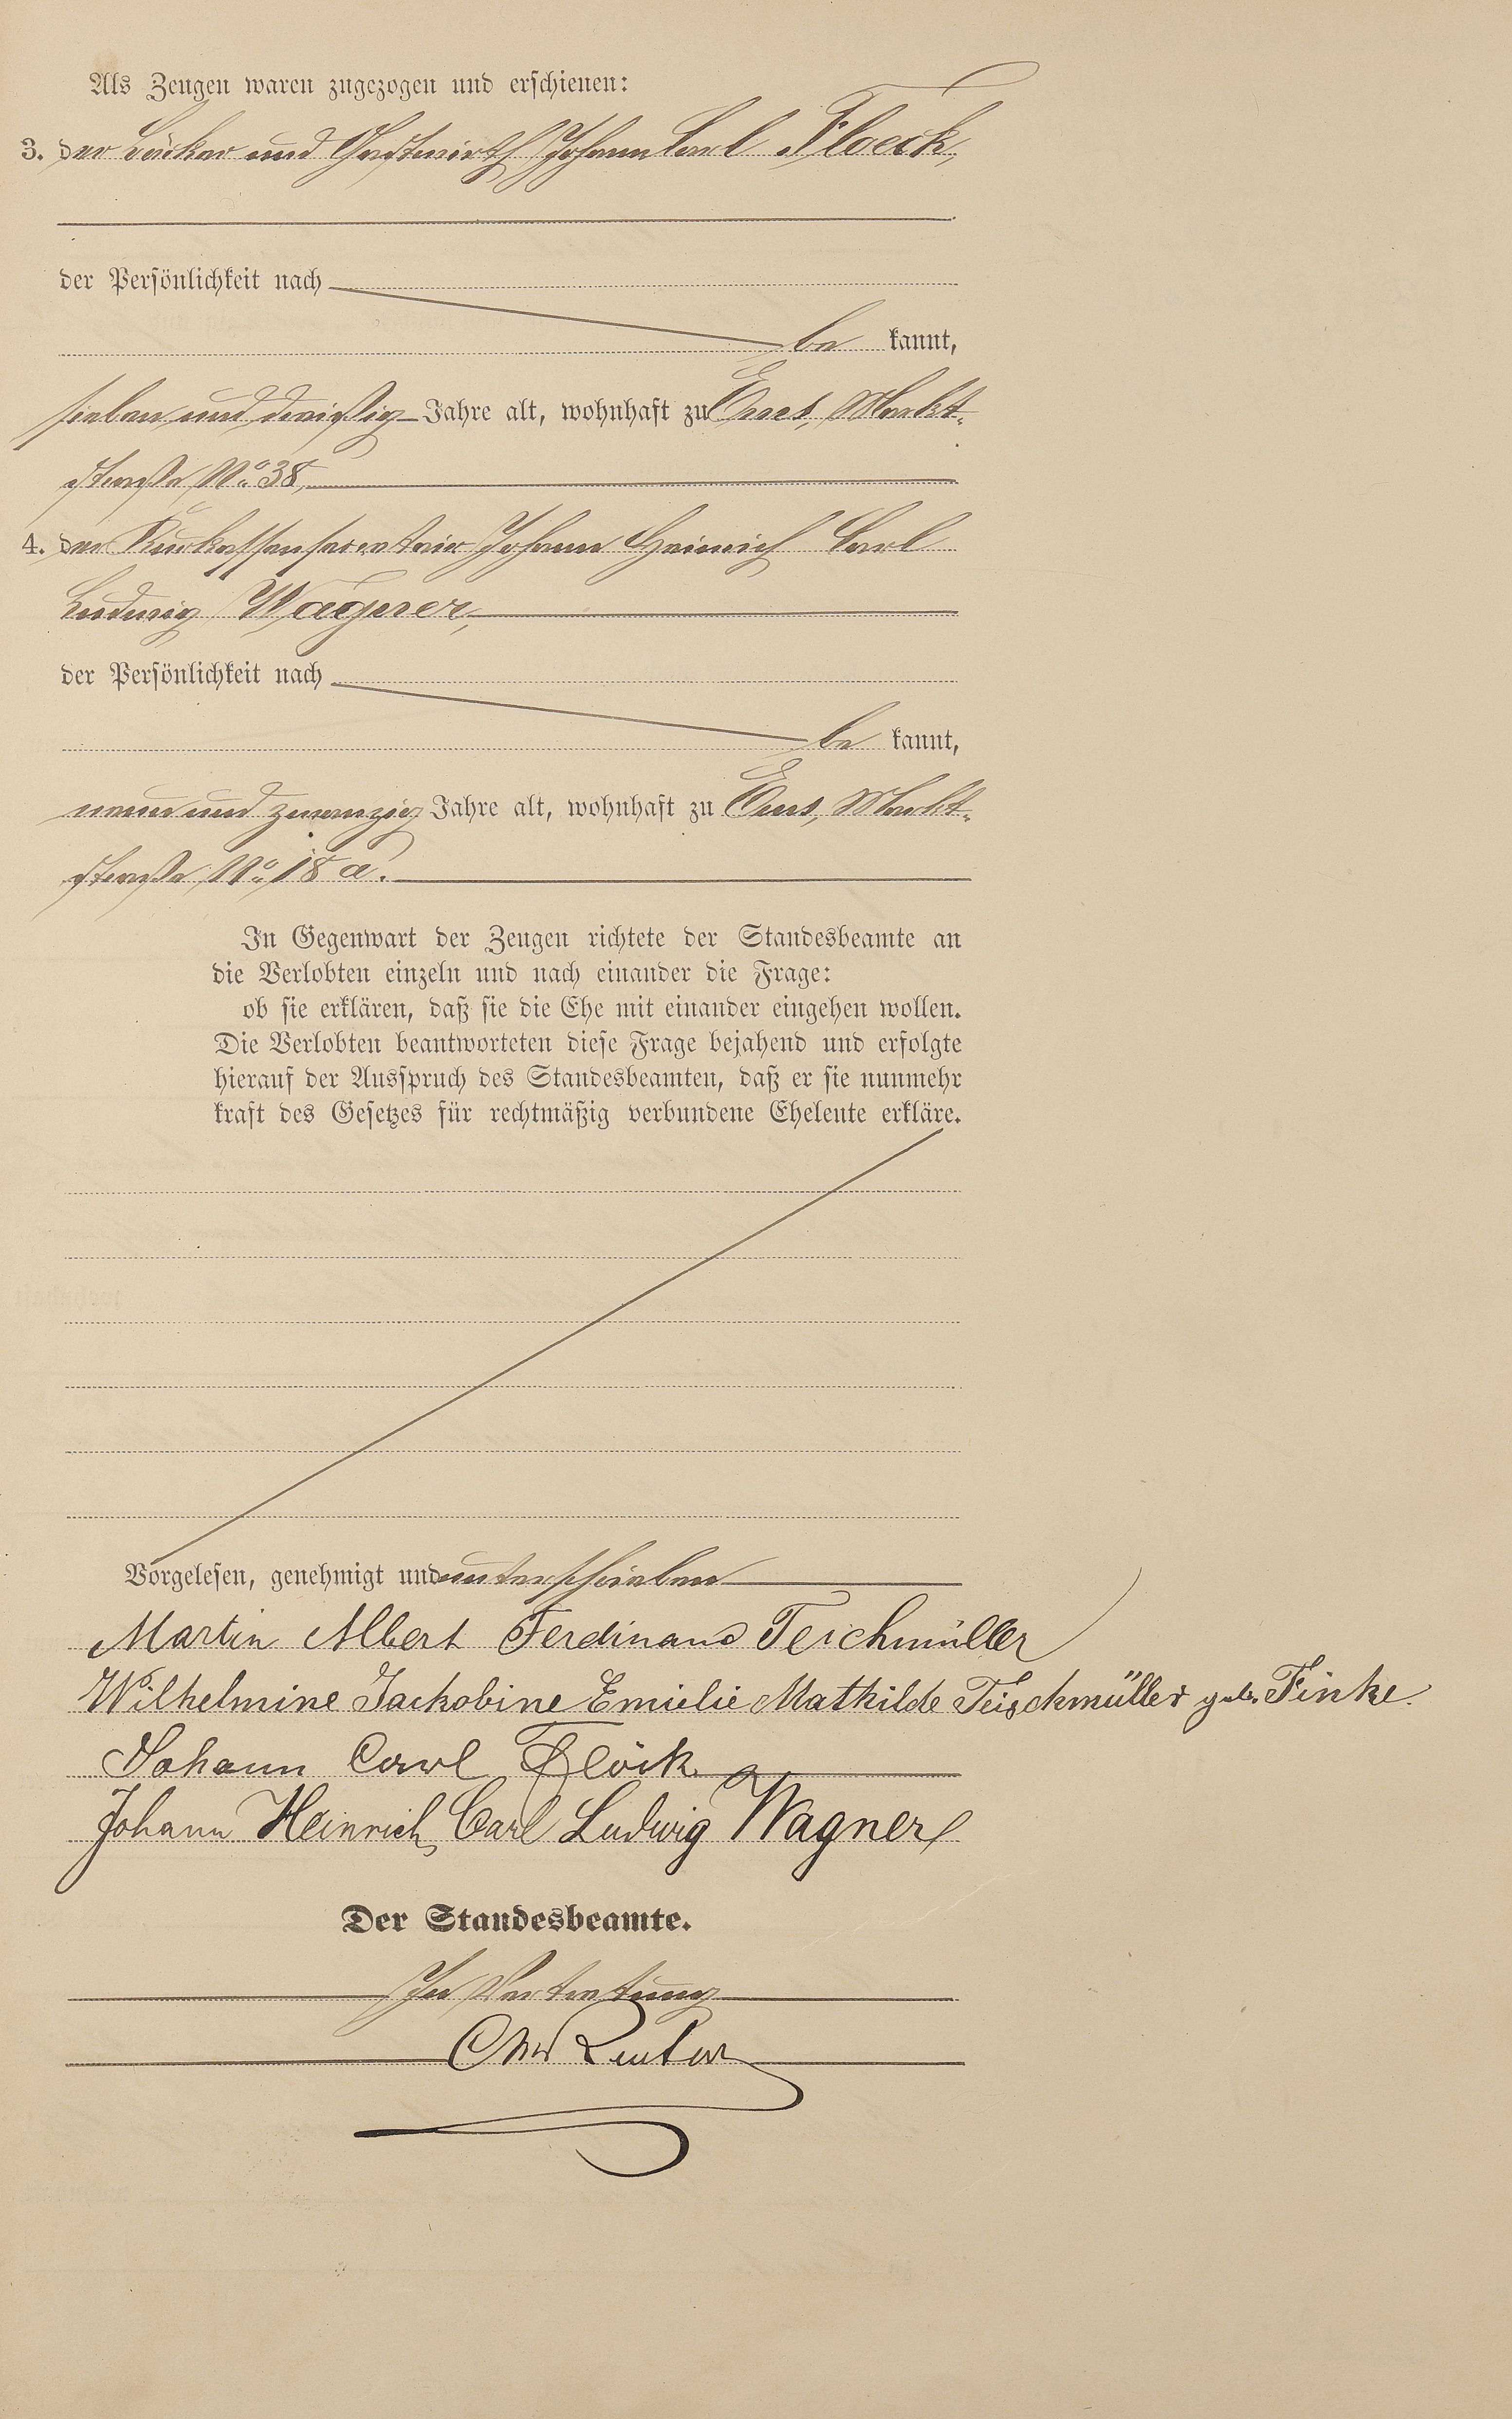 Als Zeugen waren zugezogen und erschienen:
3. der Bäcker und Gastwirth Johann Carl Floeck,
der Persönlichkeit nach
be kannt,
sieben und dreißig Jahre alt, wohnhaft zu Ems, Markt-
straße No. 38,
4. der Kurkassensecretair Johann Heinrich Carl
Ludwig Wagner,
der Persönlichkeit nach
be kannt,
neun und zwanzig Jahre alt, wohnhaft zu Ems, Markt-
straße No. 18 a.
In Gegenwart der Zeugen richtete der Standesbeamte an
die Verlobten einzeln und nach einander die Frage:
ob sie erklären, daß sie die Ehe mit einander eingehen wollen.
Die Verlobten beantworteten diese Frage bejahend und erfolgte
hierauf der Ausspruch des Standesbeamten, daß er sie nunmehr
kraft des Gesetzes für rechtmäßig verbundene Eheleute erkläre.
Vorgelesen, genehmigt und unterschrieben
Martin Albert Ferdinand Teichmüller
Wilhelmine Jackobine Emielie Mathilde Teischmüller geb. Finke.
Johann Carl Flöck
Johann Heinrich Carl Ludwig Wagner
Der Standesbeamte.
In Vertretung
Reuter